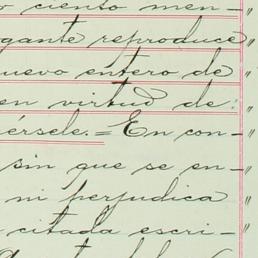 ciento men-
gante reproduce
nuevo entero de
en virtud de
érsele.=En con-
sin que se en-
ni perjudica
citada escri-